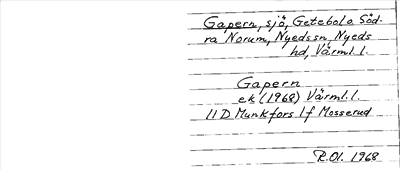 Gapern, sjö, Getebola Söd-
ra Norum, Nyedssn, Nyeds
hd, Värml.l.
Gapern
ek (1968) Värml.l.
11 D Munkfors 1f Mosserud
R.Ol. 1968